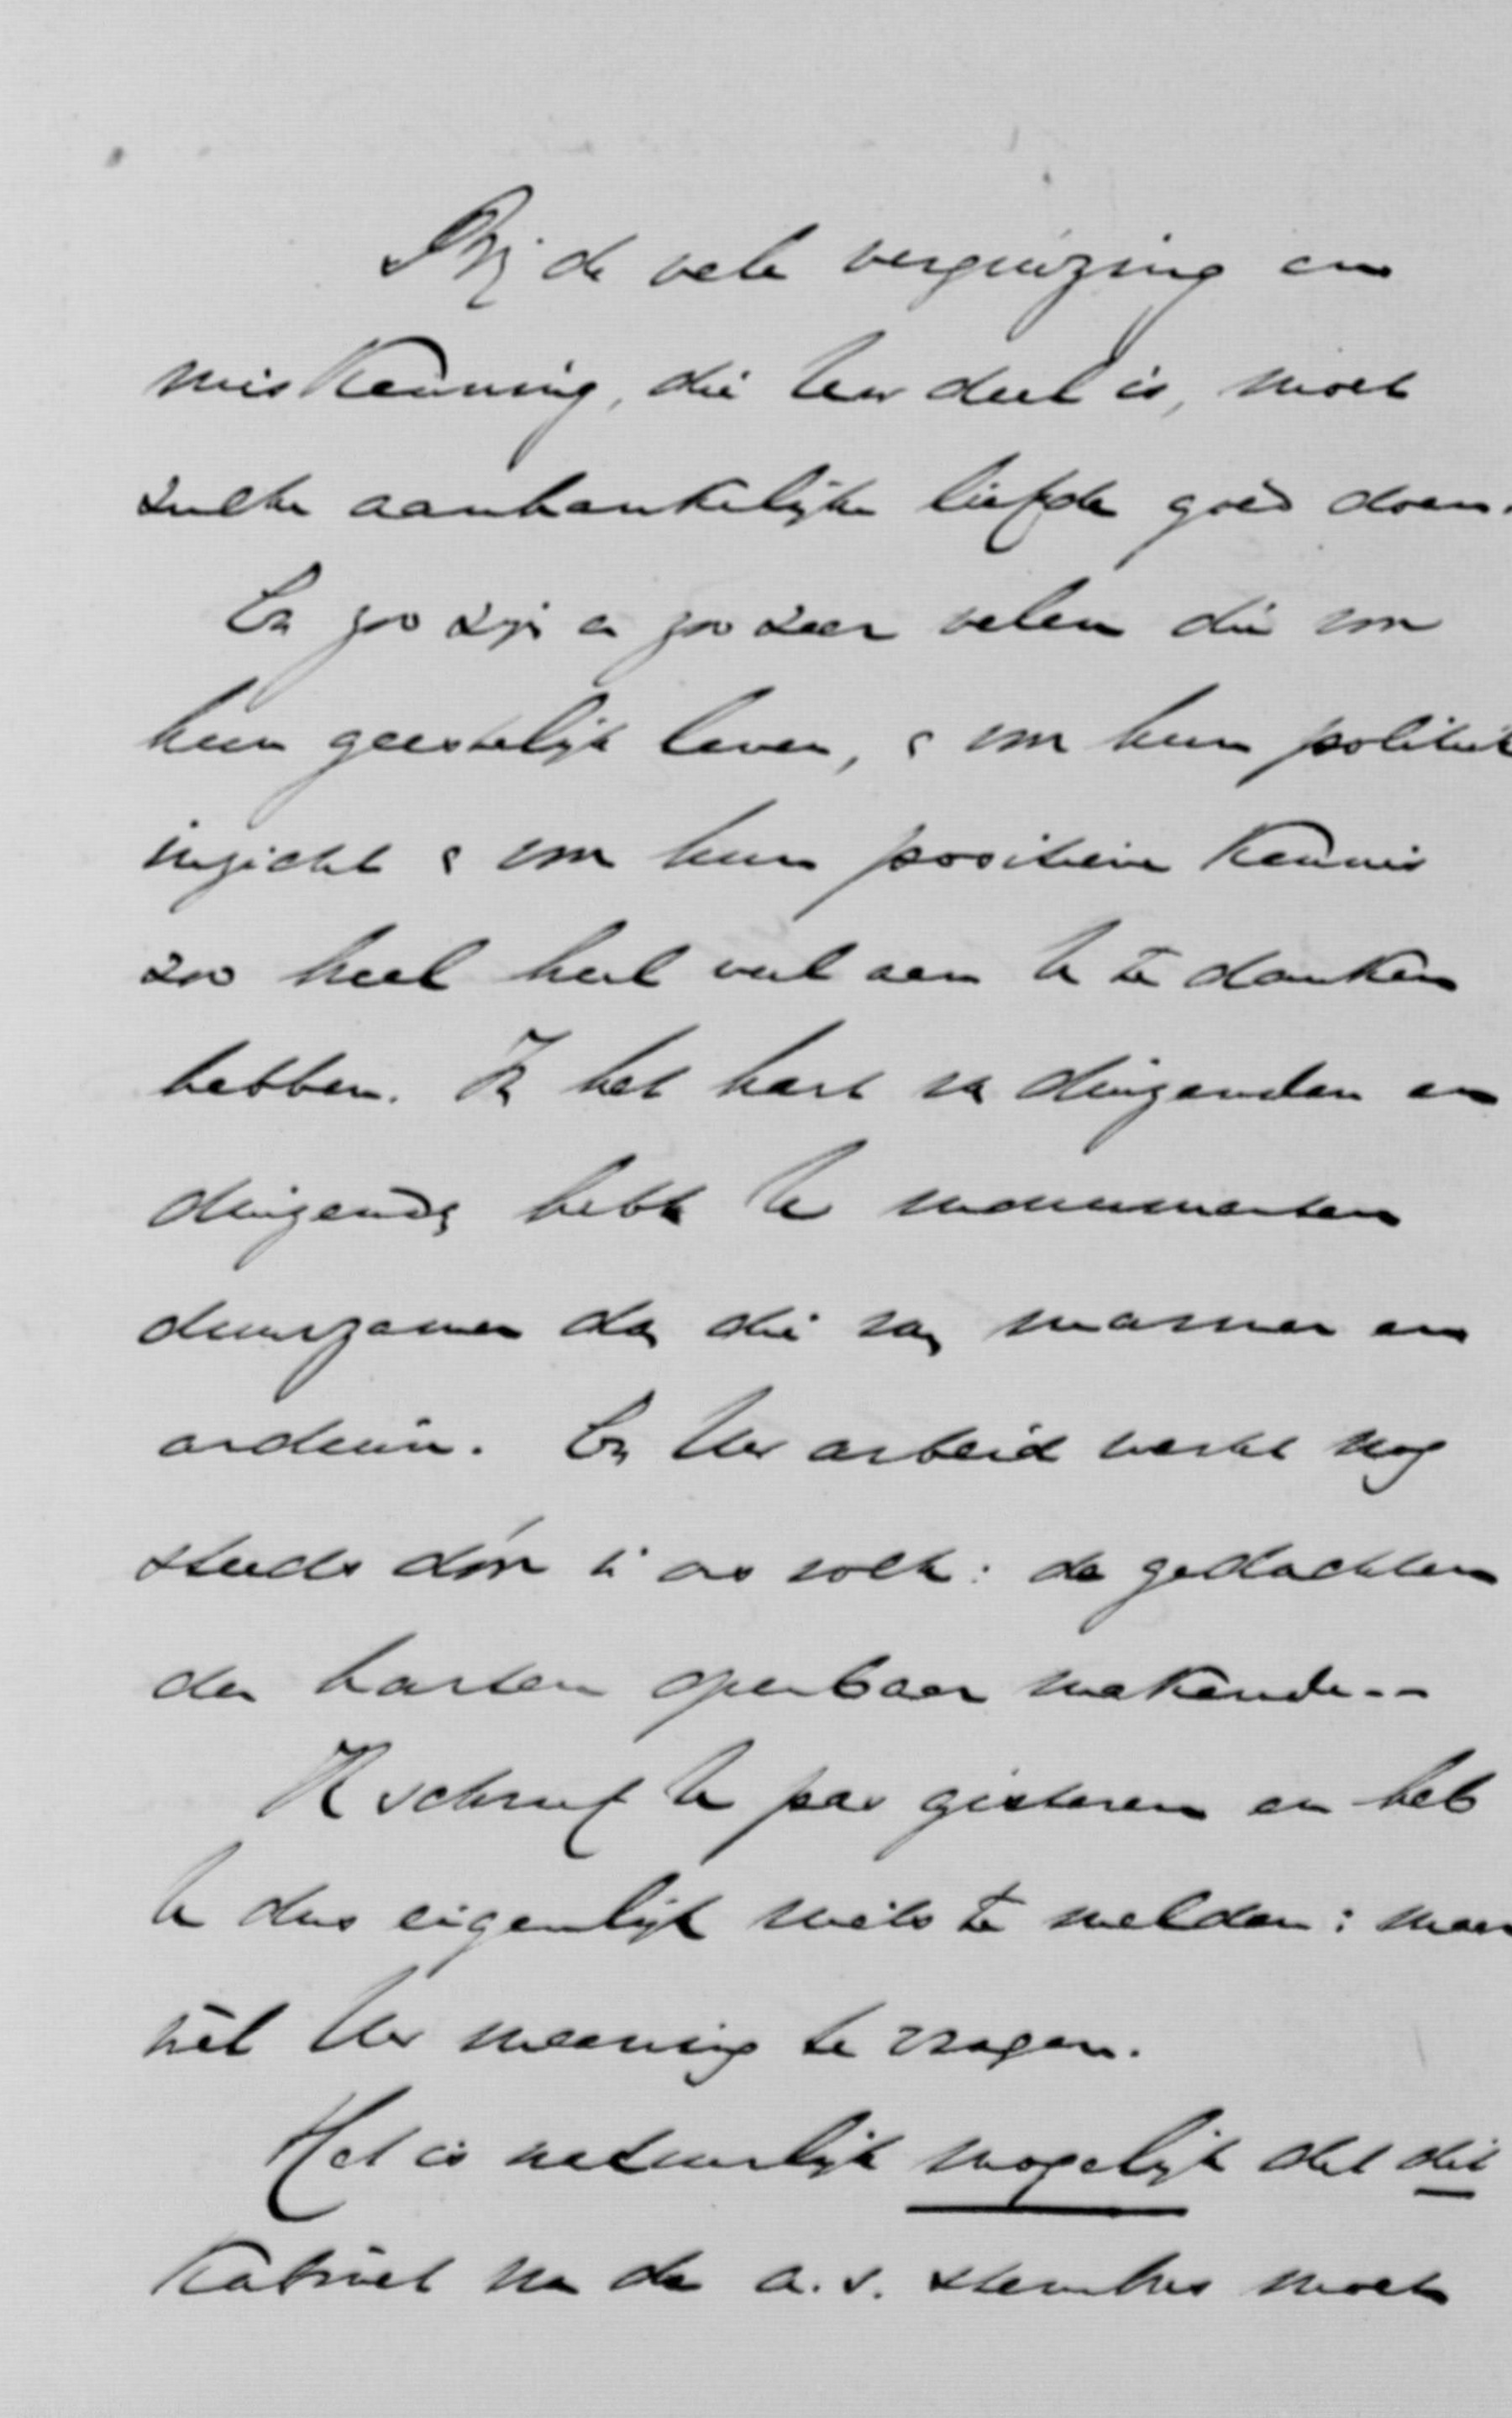 Bij de vele verguizing en
miskenning, die Uw deel is, moet
zulke aanhankelijke liefde goed doen.
En zoo zijn er zoo zeer velen die om
hun geestelijk leven, & om hun politiek
inzicht & om hun positieve kennis
zoo heel heel veel aan U te danken
hebben. In het hart van duizenden en
duizenden hebt U monumenten
duurzamer dan die van marmer en
arduin. En Uw arbeid werkt nog
steeds dóór in ons volk: de gedachten
der harten openbaar makende..
Ik schreef U pas gisteren en heb
U dus eigenlijk niets te melden: maar
wèl Uw meening te vragen.
Het is natuurlijk mogelijk dat dit
Kabinet na de a.s. stembus moet